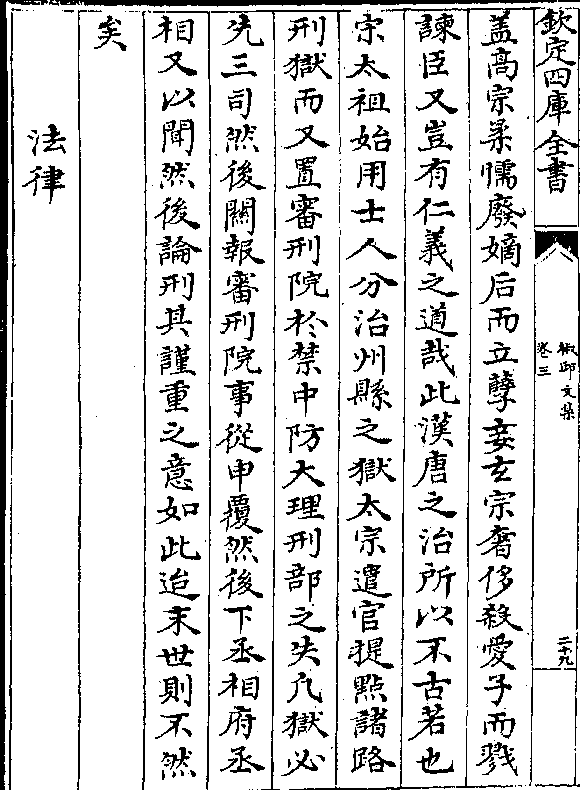 欽定四庫全書
椒邱文集
卷三
二十九
盖高宗柔懦廢嫡后而立孽妾玄宗奢侈殺愛子而戮
諫臣又豈有仁義之道哉此漢唐之治所以不古若也
宗太祖始用士人分治州縣之獄太宗遣官提點諸路
刑獄而又置審刑院於禁中防大理刑部之失凡獄必
先三司然後關報審刑院事從申覆然後下丞相府丞
相又以聞然後論刑其謹重之意如此迨末世則不然
矣
法律